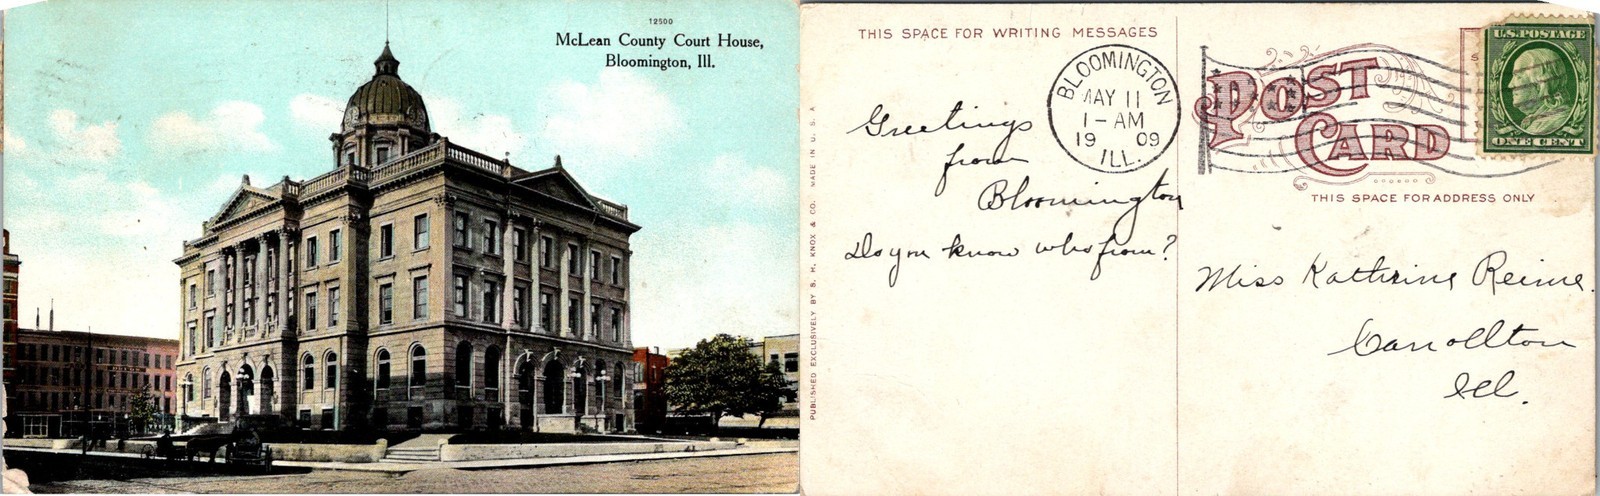 12500
McLean County Court House,
Bloomington, Ill.
THIS SPACE FOR WRITING MESSAGES
BLOOMINGTON
MAY 11
1-AM
19 09
ILL.
POST
CARD
U.S. POSTAGE
ONE CENT
THIS SPACE FOR ADDRESS ONLY
PUBLISHED EXCLUSIVELY BY S. H. KNOX & CO. MADE IN U. S. A
Greetings
from
Bloomington
Do you know who from?
Miss Kathrine Reime.
Carrollton
Ill.